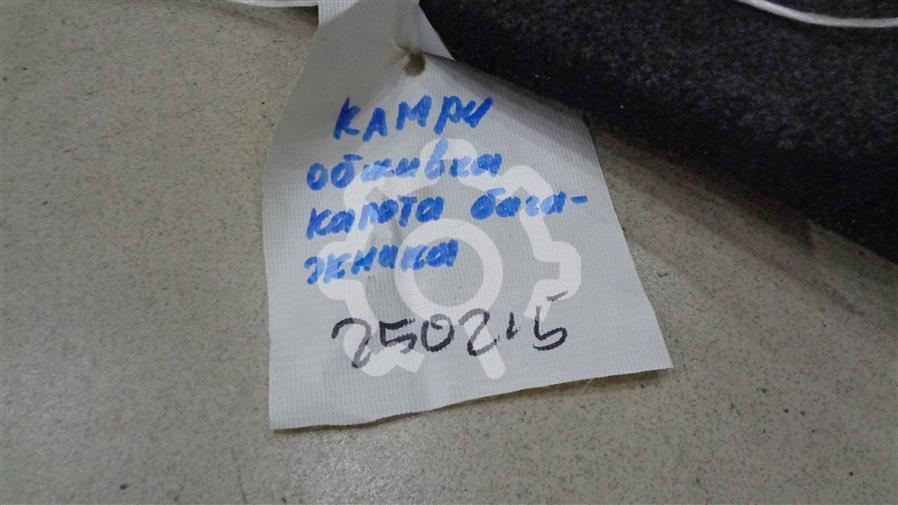 КАМРИ
обшивка
капота бага-
жника
250215